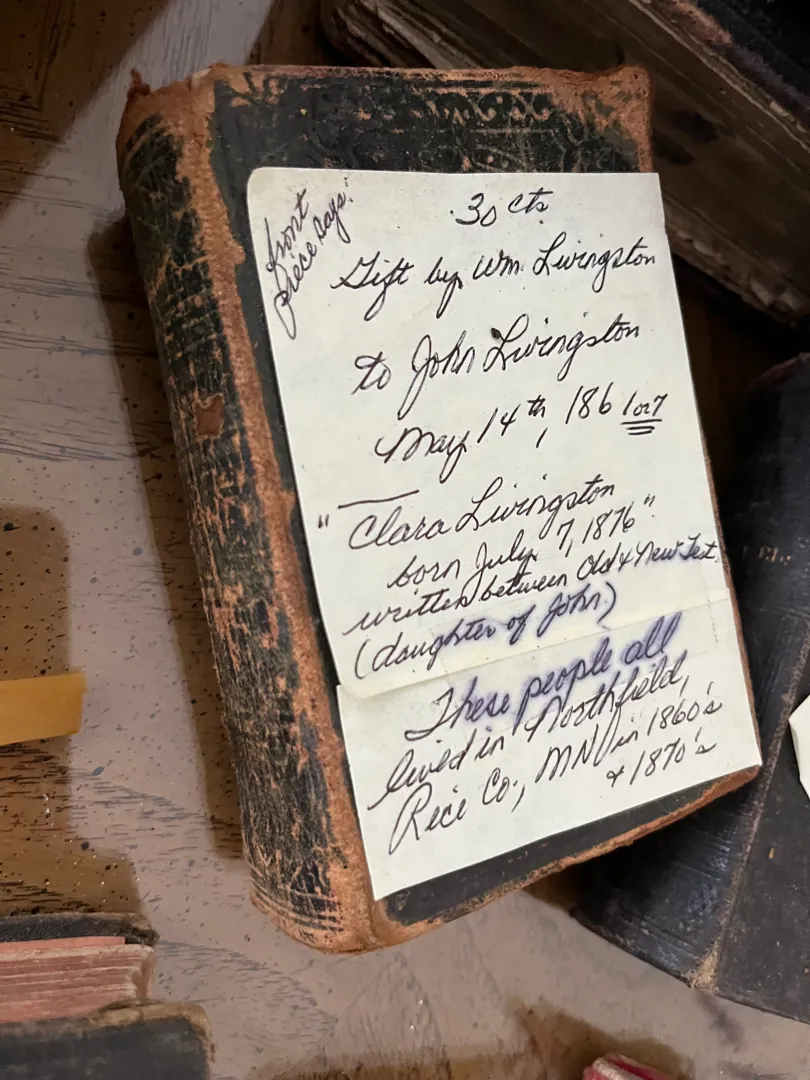 front
piece says:
30 cts
Gift by Wm. Livingston
to John Livingston
May 14th, 186 1 or 7
"Clara Livingston
born July 7, 1876"
written between Old & New Test.
(daughter of John)
These people all
lived in Northfield,
Rice Co., MN in 1860's
& 1870's